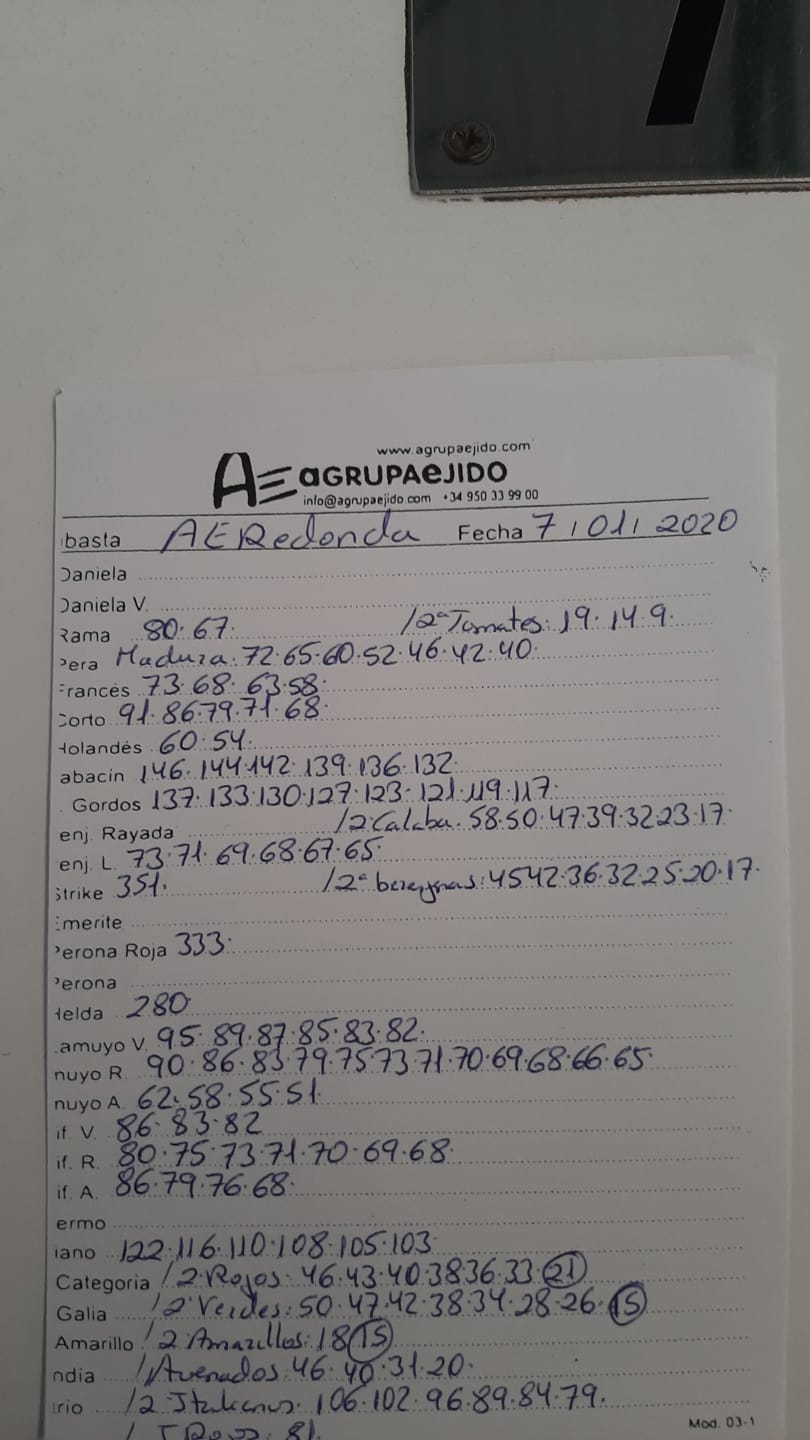 7
www.agrupaejido.com
AE aGRUPAeJIDO
info@agrupaejido.com +34 950 33 99 00
basta AERedonda Fecha 7/01/2020
Daniela
Daniela V.
Rama 80·67· /2ª Tomates: 19·14·9·
Pera Madura: 72·65·60·52·46·42·40·
Francés 73·68·63·58·
Corto 91·86·79·71·68·
Holandés 60·54·
abacín 146·144·142·139·136·132·
Gordos 137·133·130·127·123·121·119·117·
enj. Rayada /2 Calaba. 58·50·47·39·32·23·17·
enj. L. 73·71·69·68·67·65·
Strike 351· /2ª berenjenas: 45·42·36·32·25·20·17·
Emerite
Perona Roja 333·
Perona
Helda 280
amuyo V. 95·89·87·85·83·82·
nuyo R. 90·86·83·79·75·73·71·70·69·68·66·65·
nuyo A. 62·58·55·51·
if. V. 86·83·82
if. R. 80·75·73·71·70·69·68·
if. A. 86·79·76·68·
ermo
iano 122·116·110·108·105·103·
Categoria /2 Rojos: 46·43·40·38·36·33·21
Galia /2 Verdes: 50·47·42·38·34·28·26·15
Amarillo /2 Amarillos: 18·15
ndia /Avenados: 46·40·31·20·
rio /2 Italianos: 106·102·96·89·84·79·
81·
Mod. 03-1